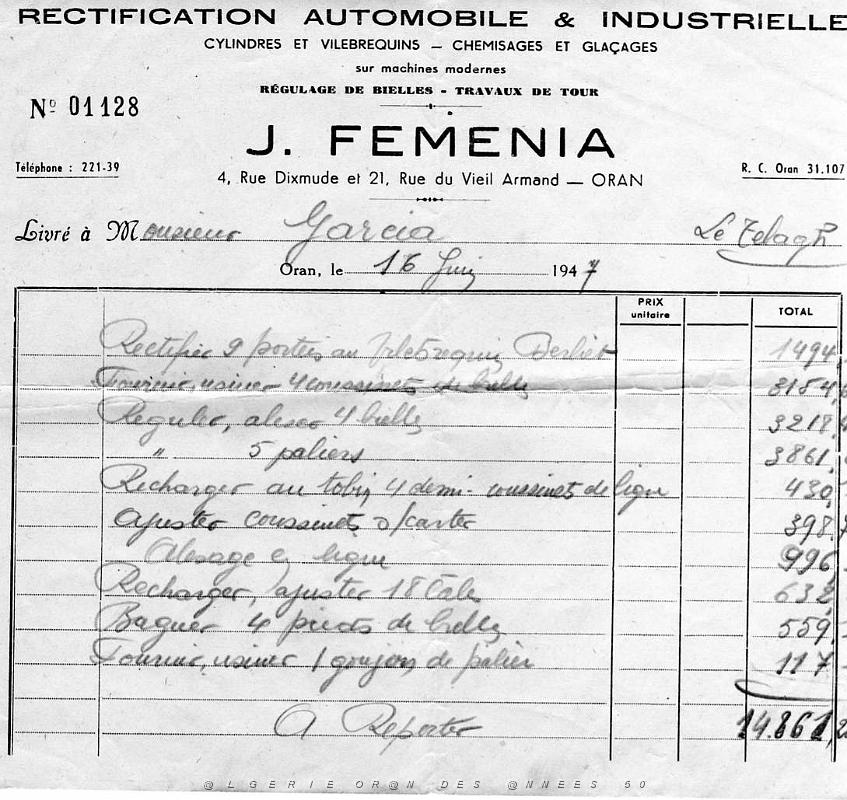 RECTIFICATION AUTOMOBILE & INDUSTRIELLE
CYLINDRES ET VILEBREQUINS — CHEMISAGES ET GLAÇAGES
sur machines modernes
RÉGULAGE DE BIELLES - TRAVAUX DE TOUR
Nº 01128
J. FEMENIA
Téléphone : 221-39
R. C. Oran 31.107
4, Rue Dixmude et 21, Rue du Vieil Armand — ORAN
Livré à Monsieur Garcia Le Telagh
Oran, le 16 Juin 1947
PRIX unitaire TOTAL
Rectifier 9 portées au vilebrequin Berliet 1494
Fournir, usiner 4 coussinets de bielle 3154
Réguler, aleser 4 bielles 3218
" 5 paliers 3861
Recharger au tobin 4 demi-coussinets de ligne 430
Ajuster coussinets s/carter 398
Alesage en ligne 996
Recharger, ajuster 18 Cales 632
Baguer 4 pieds de bielle 559
Fournir, usiner 1 goujon de palier 117
A Reporter 14.861,2
@LGERIE OR@N DES @NNEES 50